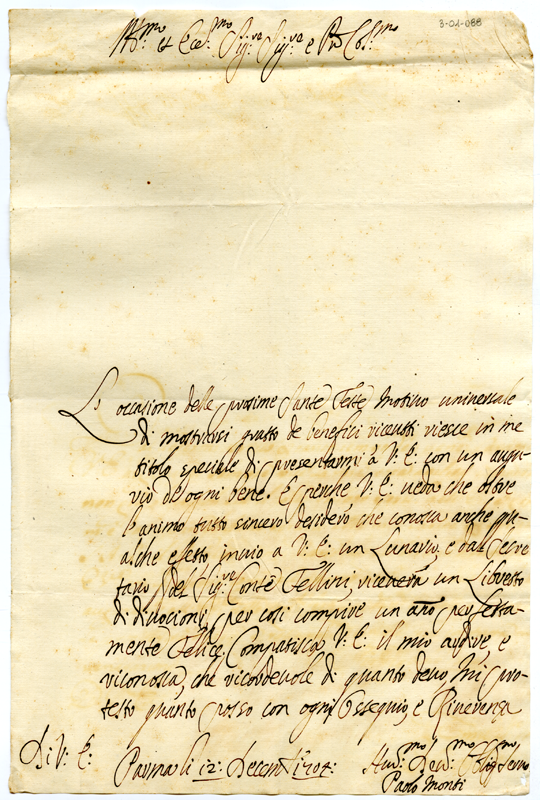 3-01-088
Ill.mo et Ecc.mo Sig.re Sig.re e Pron Col.mo
L'occasione delle prossime Sante Feste Motivo universale
di mostrarsi grato de benefici riceutti riesce in me
titolo speciale di presentarmi à V: E: con un augu-
rio de ogni bene. E perche V: E: ueda che oltre
l'animo tutto sincero desidero che conosca anche qu-
alche effetto inuio a V: E: un Lunario, e dal Secre
tario del Sig.re Conte Fellini, riceuerà un Libretto
di diuocioni, per cosi compire un año perfetta-
mente Felice, Compatisca V: E: il mio ardire, e
riconosca, che ricordeuole di quanto deuo Mi pro-
testo quanto posso con ogni Ossequio, e Riuerenza
Di V: E:
Parma li 12: Decem: 1704:
Hum.mo Deu.mo Oblig.mo Seruo
Paolo Monti